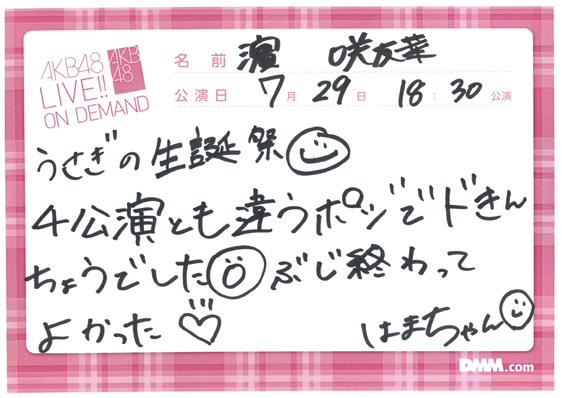 AKB48
LIVE!!
ON DEMAND
AKB
48
名 前 濵 咲友菜
公演日 7月29日 18:30公演
うさぎの生誕祭
4公演とも違うポジでドきん
ちょうでした ぶじ終わって
よかった♡ はまちゃん
DMM.com